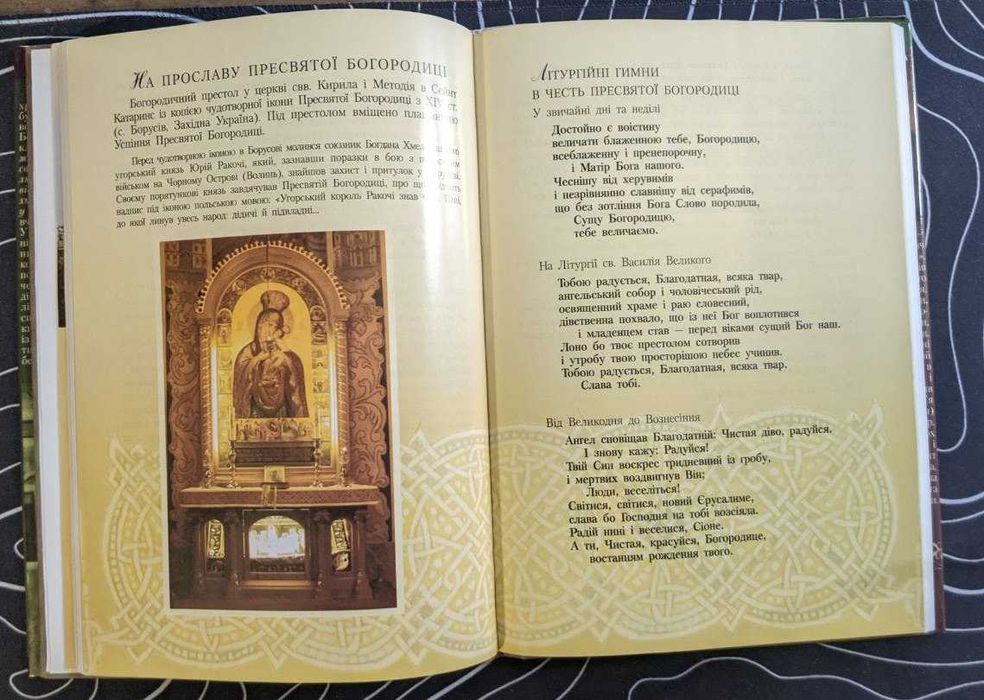 НА ПРОСЛАВУ ПРЕСВЯТОЇ БОГОРОДИЦІ
Богородичний престол у церкві свв. Кирила і Методія в Сейнт
Катаринс із копією чудотворної ікони Пресвятої Богородиці з XIV ст.
(с. Борусів, Західна Україна). Під престолом вміщено
Успіння Пресвятої Богородиці.
Перед чудотворною іконою в Борусові молився союзник Богдана
угорський князь Юрій Ракочі, який, зазнавши поразки в бою з
військом на Чорному Острові (Волинь), знайшов захист і притулок у
Своєму порятункові князь завдячував Пресвятій Богородиці, про що
надпис під іконою польською мовою: «Угорський король Ракочі знав
до якої линув увесь народ: дідичі й підвладні...
ЛІТУРГІЙНІ ГИМНИ
В ЧЕСТЬ ПРЕСВЯТОЇ БОГОРОДИЦІ
У звичайні дні та неділі
Достойно є воістину
величати блаженною тебе, Богородицю,
всеблаженну і пренепорочну,
і Матір Бога нашого.
Чеснішу від херувимів
і незрівнянно славнішу від серафимів,
що без зотління Бога Слово породила,
Сущу Богородицю,
тебе величаємо.
На Літургії св. Василія Великого
Тобою радується, Благодатная, всяка твар,
ангельський собор і чоловічеський рід,
освященний храме і раю словесний,
дівственна похвало, що із неї Бог воплотився
і младенцем став — перед віками сущий Бог наш.
Лоно бо твоє престолом сотворив
і утробу твою просторішою небес учинив.
Тобою радується, Благодатная, всяка твар.
Слава тобі.
Від Великодня до Вознесіння
Ангел сповіщав Благодатній: Чистая діво, радуйся.
І знову кажу: Радуйся!
Твій Син воскрес тридневний із гробу,
і мертвих воздвигнув Він;
Люди, веселіться!
Світися, світися, новий Єрусалиме,
слава бо Господня на тобі возсіяла.
Радій нині і веселися, Сіоне.
А ти, Чистая, красуйся, Богородице,
востанням рождення твого.